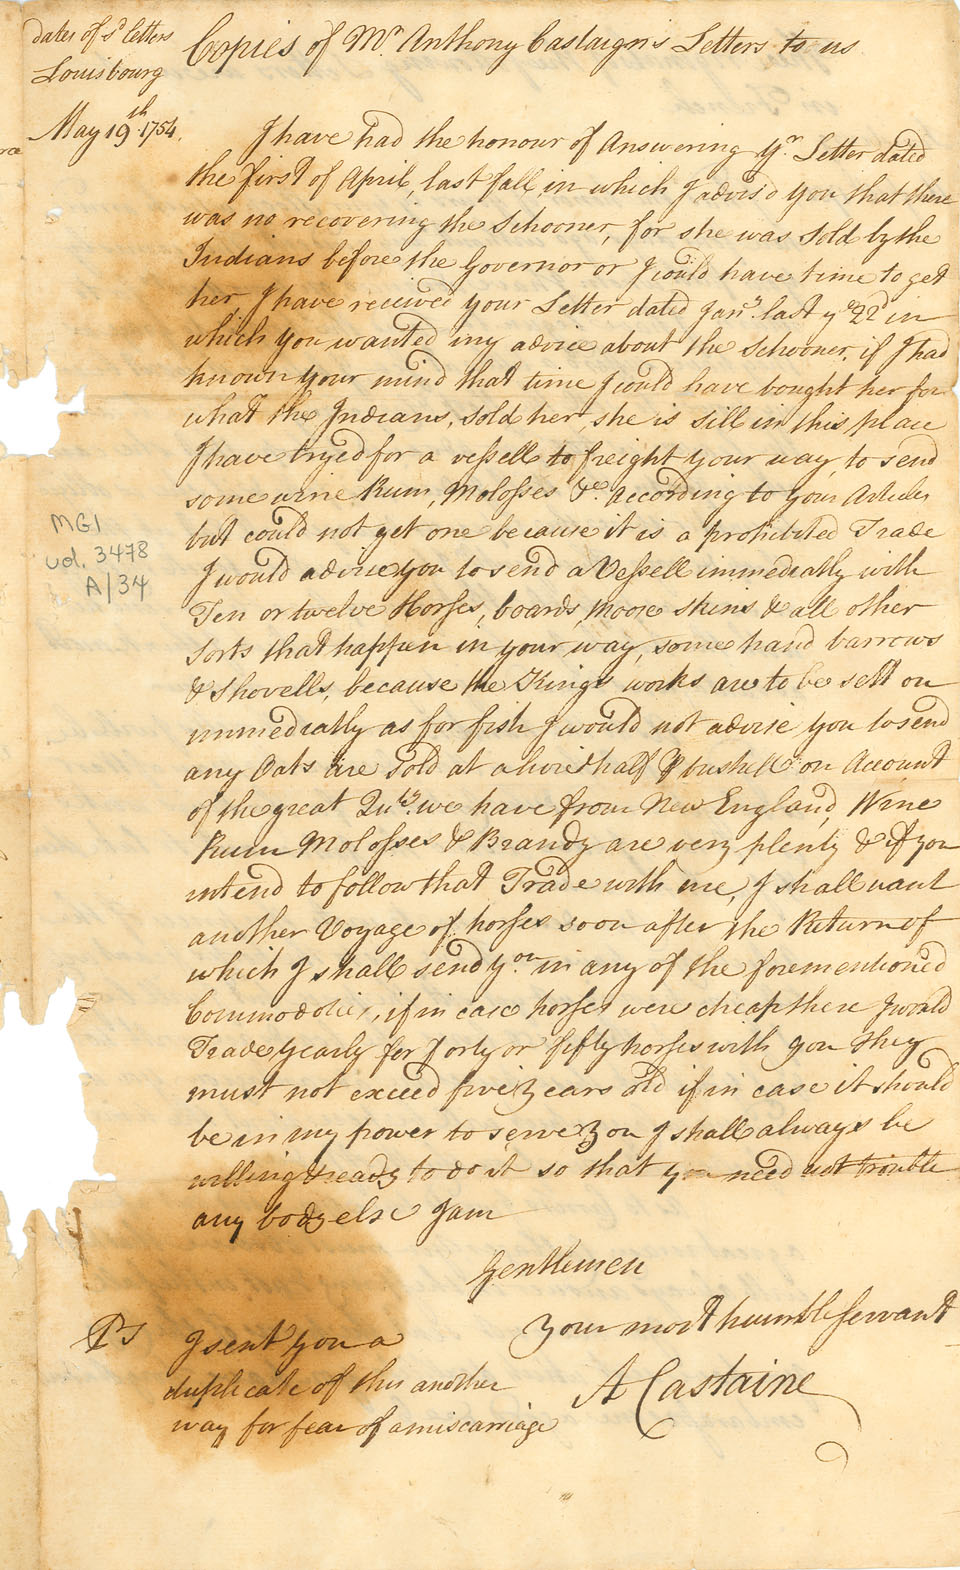 dates of sd letters
Louisbourg
May 19th 1754.
Copies of Mr Anthony Castaign's Letters to us
I have had the honour of Answering yr Letter dated
the first of April, last fall, in which I advis'd you that there
was no recovering the Schooner, for she was sold by the
Indians before the Governor or I could have time to get
her. I have received your Letter dated Jany last ye 22d in
which you wanted my advice about the Schooner, if I had
known your mind that time I could have bought her for
what the Indians, sold her, she is sill in this place
I have tryed for a vessell to freight your way, to send
some wine Rum, Molosses &c. According to your Articles
but could not get one because it is a prohibited Trade
I would advise you to send a Vessell immediatly with
Ten or twelve Horses, boards, moose skins & all other
sorts that happen in your way, some hand barrows
& Shovells, because the Kings works are to be sett on
immediatly as for fish I would not advise you to send
any Oats are sold at a livre & half p bushell on Account
of the great Quty. we have from New England, Wine
Rum Molosses & Brandy are very plenty & if you
intend to follow that Trade with me, I shall want
another Voyage of horses soon after the Return of
which I shall send you in any of the forementioned
Commodoties, if in case horses were cheap there I would
Trade yearly for forty or fifty horses with you they
must not exceed five years old if in case it should
be in my power to serve you I shall always be
willing & ready to do it so that you need not trouble
any body else I am
Gentlemen
Your most humble Servant
A Castaine
Ps
I sent you a
duplicate of this another
way for fear of a miscarriage
MG1
vol. 3478
A/34